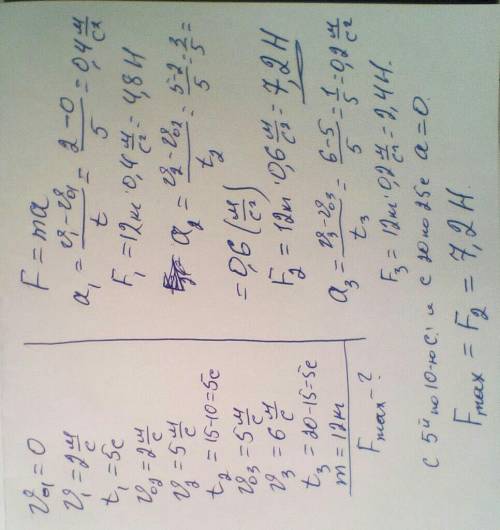 v₀₁ = 0
v₁ = 2 м/с
t₁ = 5с
v₀₂ = 2 м/с
v₂ = 5 м/с
t₂ = 15-10=5с
v₀₃ = 5 м/с
v₃ = 6 м/с
t₃ = 20-15=5с
m = 12кг
Fmax - ?
F = ma
a₁ = (v₁ - v₀₁)/t = (2-0)/5 = 0,4 м/с²
F₁ = 12кг · 0,4 м/с² = 4,8 Н
a₂ = (v₂ - v₀₂)/t₂ = (5-2)/5 = 3/5 =
= 0,6 (м/с²)
F₂ = 12кг · 0,6 м/с² = 7,2 Н
a₃ = (v₃ - v₀₃)/t₃ = (6-5)/5 = 1/5 = 0,2 м/с²
F₃ = 12кг · 0,2 м/с² = 2,4 Н.
с 5й по 10-ю с. и с 20 по 25с a = 0.
Fmax = F₂ = 7,2 Н.